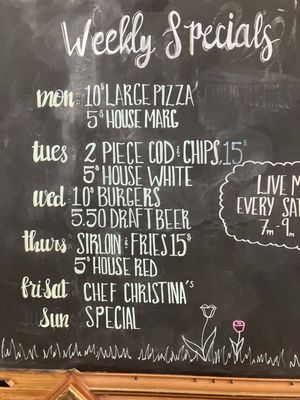 Weekly Specials
mon: 10$ LARGE PIZZA
5$ HOUSE MARG
tues: 2 PIECE COD & CHIPS 15$
5$ HOUSE WHITE
wed: 10$ BURGERS
5.50 DRAFT BEER
thurs: SIRLOIN & FRIES 15$
5$ HOUSE RED
fri-sat CHEF CHRISTINA'S
sun SPECIAL
LIVE M
EVERY SAT
7PM-9